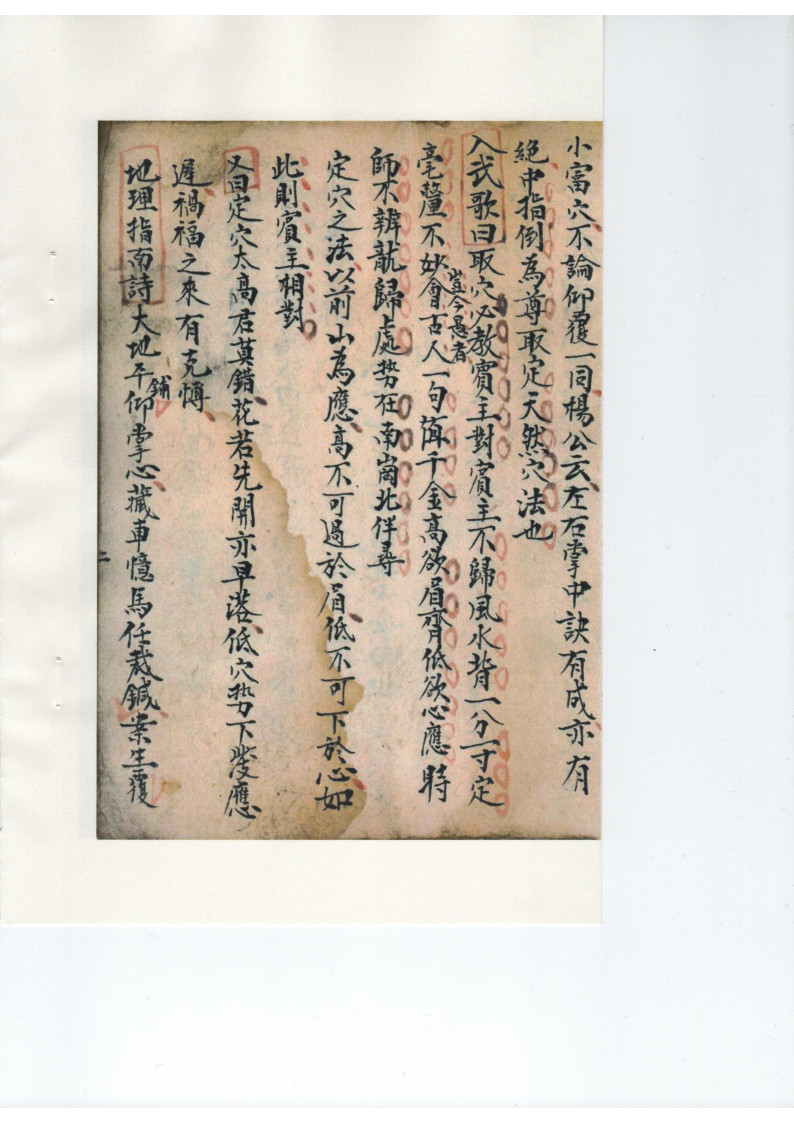 小富穴不論仰覆一同楊公云左右掌中訣有成亦有
絕中指倒為尊取定天然穴法也
入式歌曰取穴必教賓主對賓主不歸風水背一分一寸定
毫釐不妙會古人一句值千金高欲眉齊低欲心應時
豈今愚者
師不辨龍歸處势在南崗北伴尋
定穴之法以前山為應高不可過於眉低不可下於心如
此則賓主相對
又曰定穴太高君莫錯花若先開亦早落低穴势下發應
遲禍福之來有克博
地理指南詩大地平仰掌心藏車憶馬任裁鍼案生覆
鋪
二